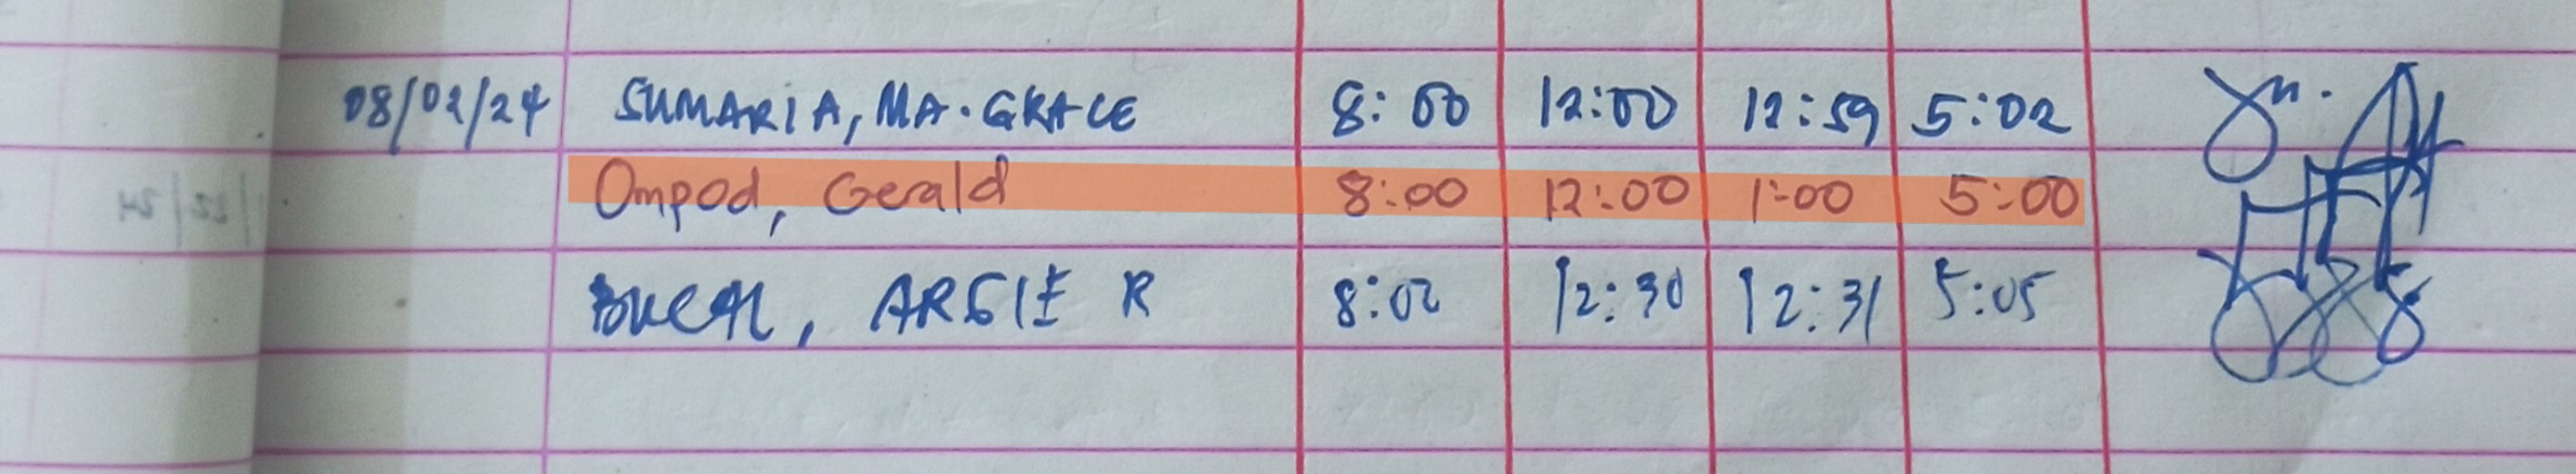 08/02/24 SUMARIA, MA. GRACE 8:00 12:00 12:59 5:02
Ompod, Gerald 8:00 12:00 1:00 5:00
ARGIE R 8:02 12:30 12:31 5:05